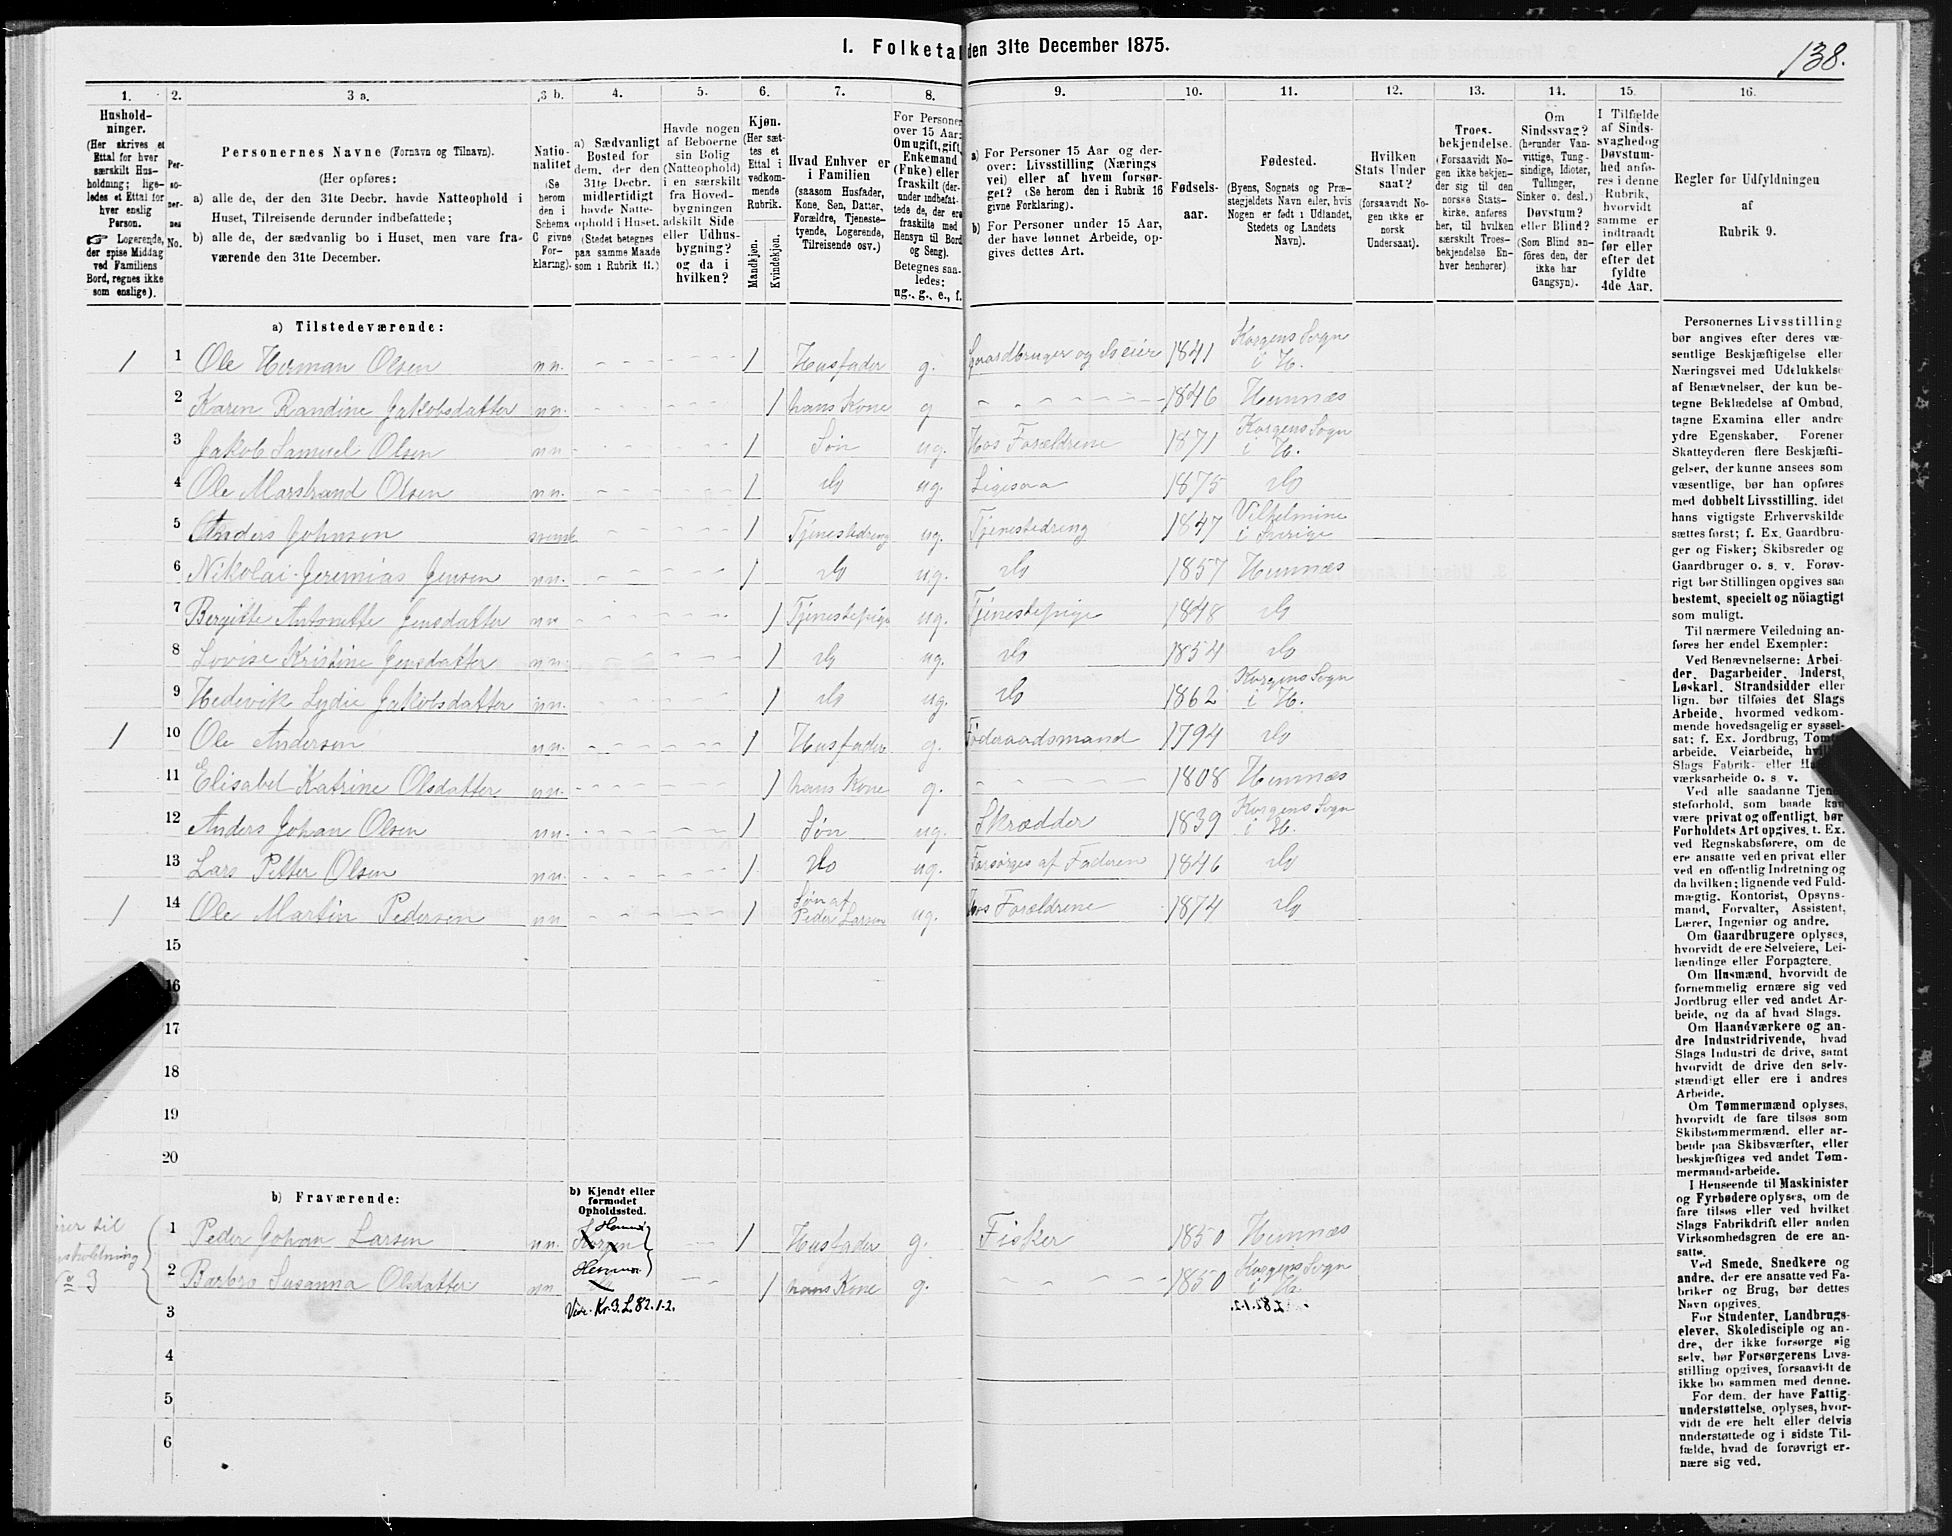 I. Folketal den 31te December 1875.
138.
1. 2. 3 a. 3 b. 4. 5. 6. 7. 8. 9. 10. 11. 12. 13. 14. 15. 16.
Hushold-
ninger.
(Her skrives et
Ettal for hver
særskilt Hus-
holdning; lige-
ledes et Ettal for
hver enslig
Person.
☞ Logerende,
der spise Middag
ved Familiens
Bord, regnes ikke
som enslige).
Per-
so-
ner-
nes
No.
Personernes Navne (Fornavn og Tilnavn).
(Her opføres:
a) alle de, der den 31te Decbr. havde Natteophold i
Huset, Tilreisende derunder indbefattede;
b) alle de, der sædvanlig bo i Huset, men vare fra-
værende den 31te December.
Natio-
nalitet
(Se
herom
den i
Schema
C givne
For-
klaring).
a) Sædvanligt
Bosted for
dem, der den
31te Decbr.
midlertidigt
havde Natte-
ophold i Huset.
(Stedet betegnes
paa samme Maade
som i Rubrik 11.)
Havde nogen
af Beboerne
sin Bolig
(Natteophold)
i en særskilt
fra Hoved-
bygningen
adskilt Side-
eller Udhus-
bygning?
og da i
hvilken?
Kjøn.
(Her sæt-
tes et
Ettal i
vedkom-
mende
Rubrik.
Mandkjøn.
Kvindekjøn.
Hvad Enhver er
i Familien
(saasom Husfader,
Kone, Søn, Datter,
Forældre, Tjeneste-
tyende, Logerende,
Tilreisende osv.)
For Personer
over 15 Aar:
Om ugift, gift,
Enkemand
(Enke) eller
fraskilt (der-
under indbefat-
tede de, der ere
fraskilte med
Hensyn til Bord
og Seng).
Betegnes saa-
ledes:
ug., g., e., f.
a) For Personer 15 Aar og der-
over: Livsstilling (Nærings
vei) eller af hvem forsør-
get? (Se herom den i Rubrik 16
givne Forklaring).
b) For Personer under 15 Aar,
der have lønnet Arbeide, op-
gives dettes Art.
Fødsels-
aar.
Fødested.
(Byens, Sognets og Præ-
stegjeldets Navn eller, hvis
Nogen er født i Udlandet,
Stedets og Landets
Navn).
Hvilken
Stats Under
saat?
(forsaavidt No-
gen ikke er
norsk
Undersaat).
Troes-
bekjendelse.
(Forsaavidt No-
gen ikke bekjen-
der sig til den
norske Stats-
kirke, anføres
her, til hvilken
særskilt Troes-
bekjendelse En-
hver henhører).
Om
Sindssvag?
(herunder Van-
vittige, Tung-
sindige, Idioter,
Tullinger,
Sinker o. desl.)
Døvstum?
eller Blind?
(Som Blind an-
føres den, der
ikke har
Gangsyn).
I Tilfælde
af Sinds-
svaghed og
Døvstum-
hed anfø-
res i denne
Rubrik,
hvorvidt
samme er
indtraadt
før eller
efter det
fyldte
4de Aar.
Regler for Udfyldningen
af
Rubrik 9.
a) Tilstedeværende:
1 1 Ole Herman Olsen nn. 1 Husfader g. Gaardbruger og Seleier 1841 Korgens Sogn i H.
2 Karen Randine Jakobsdatter nn. 1 hans Kone g 1846 Hemnæs
3 Jakob Samuel Olsen nn 1 Søn ug. Hos Forældrene 1871 Korgens Sogn i H.
4 Ole Marstrand Olsen nn. 1 do ug. Ligesaa 1875 do
5 Anders Johnson svensk 1 Tjenestedreng ug. Tjenestedreng 1847 Vilhelmine i Sverige
6 Nikolai Jeremias Jensen nn. 1 do ug. do 1857 Hemnæs
7 Bergitte Antonette Jensdatter nn 1 Tjenestepige ug. Tjenestepige 1848 do
8 Lovise Kristine Jensdatter nn. 1 do ug. do 1854 do
9 Hedevik Lydie Jakobsdatter nn. 1 do ug. do 1862 Korgens Sogn i H.
1 10 Ole Andersen nn. 1 Husfader g. Føderaadsmand 1794 do
11 Elisabet Katrine Olsdatter nn. 1 hans Kone g. 1808 Hemnæs
12 Anders Johan Olsen nn. 1 Søn ug. Skrædder 1839 Korgens Sogn i H.
13 Lars Petter Olsen nn. 1 do ug. Forsørges af Faderen 1846 do
1 14 Ole Martin Pedersen nn 1 Søn af Peder Larsen ug. Hos Forældrene 1874 do
15
16
17
18
19
20
b) Fraværende:
b) Kjendt eller
formodet
Opholdssted.
1 Peder Johan Larsen nn. Korgen 1 Husfader g. Fisker 1850 Hemnæs
2 Barbro Susanna Olsdatter nn 1 hans Kone g. 1850 Korgens Sogn i H.
3 Vide Kr. 3. L 82. 1-2.
4
5
6
Personernes Livsstilling
bør angives efter deres væ-
sentlige Beskjæftigelse eller
Næringsvei med Udelukkelse
af Benævnelser, der kun be-
tegne Beklædelse af Ombud,
tagne Examina eller andre
ydre Egenskaber. Forener
Skatteyderen flere Beskjæfti-
gelser, der kunne ansees som
væsentlige, bør han opføres
med dobbelt Livsstilling, idet
hans vigtigste Erhvervskilde
sættes først; f. Ex. Gaardbru-
ger og Fisker; Skibsreder og
Gaardbruger o. s. v. Forøv-
rigt bør Stillingen opgives saa
bestemt, specielt og nöiagtigt
som muligt.
Til nærmere Veiledning an-
føres her endel Exempler:
Ved Benævnelserne: Arbei-
der, Dagarbeider, Inderst,
Løskarl, Strandsidder eller
lign. bør tilføies det Slags
Arbeide, hvormed vedkom-
mende hovedsagelig er syssel-
sat; f. Ex. Jordbrug, Tømmer-
arbeide, Veiarbeide,
Slags Fabrik- eller
værksarbeide o. s. v.
Ved alle saadanne Tjene-
steforhold, som baade kan
være privat og offentligt, bør
Forholdets Art opgives, t. Ex.
ved Regnskabsførere, om de
ere ansatte ved en privat eller
ved en offentlig Indretning og
da hvilken; lignende ved Fuld-
mægtig, Kontorist, Opsyns-
mand, Forvalter, Assistent,
Lærer, Ingeniør og andre.
Om Gaardbrugere oplyses,
hvorvidt de ere Selveiere, Lei-
lændinge eller Forpagtere.
Om Husmænd, hvorvidt de
fornemmelig ernære sig ved
Jordbrug eller ved andet Ar-
beide, og da af hvad Slags.
Om Haandværkere og an-
dre Industridrivende, hvad
Slags Industri de drive, samt
hvorvidt de drive den selv-
stændigt eller ere i andres
Arbeide.
Om Tømmermænd oplyses,
hvorvidt de fare tilsøs som
Skibstømmermænd, eller ar-
beide paa Skibsværfter, eller
beskjæftiges ved andet Tøm-
mermandsarbeide.
I Henseende til Maskinister
og Fyrbødere oplyses, om de
fare tilsøs eller ved hvilket
Slags Fabrikdrift eller anden
Virksomhedsgren de ere an-
satte.
Ved Smede, Snedkere og
andre, der ere ansatte ved Fa-
briker og Brug, bør dettes
Navn opgives.
For Studenter, Landbrugs-
elever, Skoledisciple og an-
dre, der ikke forsørge sig
selv, bør Forsørgerens Livs-
stilling opgives, forsaavidt de
ikke bo sammen med denne.
For dem, der have Fattig-
understøttelse, oplyses, hvor-
vidt de ere helt eller delvis
understøttede og i sidste Til-
fælde, hvad de forøvrigt er-
nære sig ved.